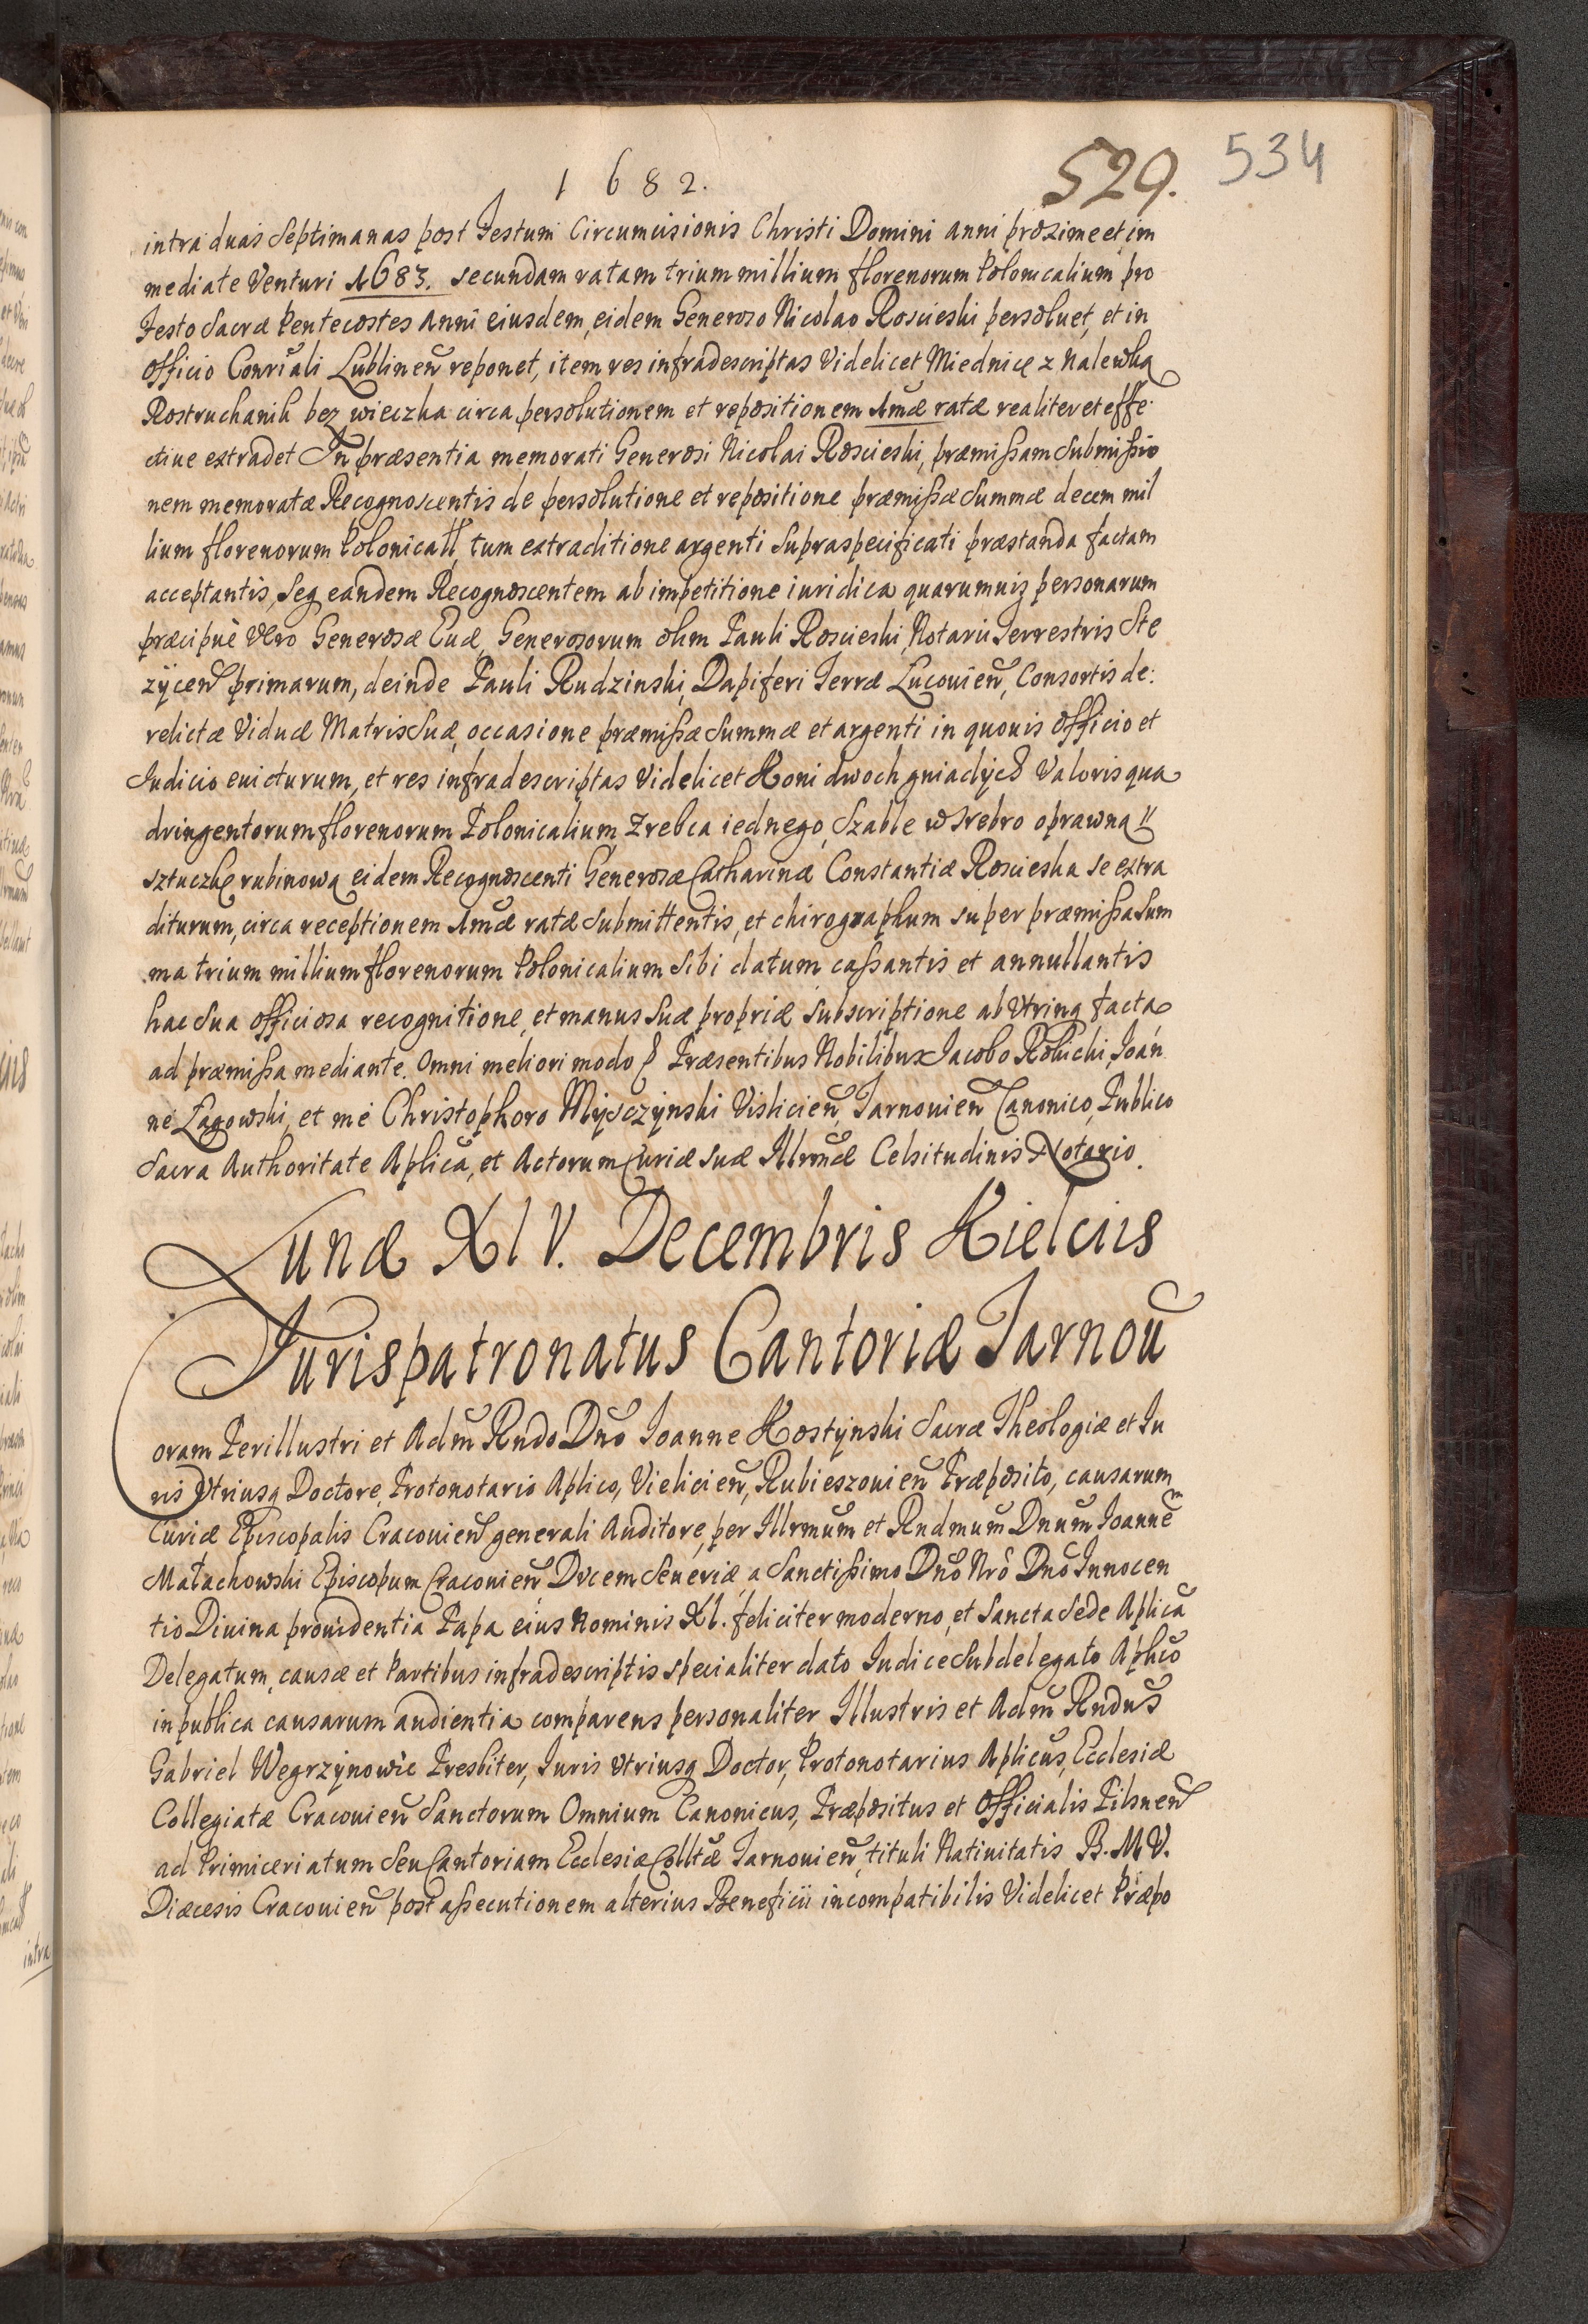 1682.
529.
534
intra duas Septimanas post Festum Circumcisionis Christi Domini anni proxime et im
mediate Venturi 1683. secundam ratam trium millium florenorum Polonicalium pro
Festo Sacræ Pentecostes Anni eiusdem, eidem Generoso Nicolao Roscieski persoluet, et in
Officio Consr̃iali Lublineñ reponet, item res infradescriptas Videlicet Miednicę z Nalewką
Rostruchanik bez wieczka circa persolutionem et repositionem 1mæ ratæ realiter et effe
ctiue extradet In præsentia memorati Generosi Nicolai Roscieski, præmißam Submißio
nem memoratæ Recognoscentis de persolutione et repositione præmißæ Summæ decem mil
lium florenorum Polonicall, tum extraditione argenti Supraspecificati præstanda factam
acceptantis, Seq eandem Recognoscentem ab impetitione iuridica quarumuis personarum
præcipuè Vero Generosæ Euæ, Generosorum olim Pauli Roscieski, Notarii Terrestris Ste
zÿceñ primarum, deinde Pauli Rudzinski, Dapiferi Terræ Lucouieñ, Consortis de:
relictæ Viduæ Matris Suæ, occasione præmißæ Summæ et argenti in quouis Officio et
Iudicio euicturum, et res infradescriptas Videlicet Koni dwoch gniadÿch Valoris qua
dringentorum florenorum Polonicalium, Zrebca iednego, Szable w srebro oprawną
sztuczkę rubinową eidem Recognoscenti Generosæ Catharinæ Constantiæ Roscieska se extra
diturum, circa receptionem 1mæ ratæ Submittentis, et chirographum super præmißa Sum
ma trium millium florenorum Polonicalium Sibi datum caßantis et annullantis
hac Sua officiosa recognitione, et manus Suæ propriæ Subscriptione ab Vtrinq facta
ad præmißa mediante. Omni meliori modo Præsentibus Nobilibus Iacobo Rokicki, Ioan
ne Łagowski, et me Christophoro Mÿsczÿnski Vislicieñ, Tarnouieñ Canonico, Publico
Sacra Authoritate Aplicã, et Actorum Curiæ suæ Illrmæ Celsitudinis Notario.
Lunæ XIV. Decembris Kielciis
Jurispatronatus Cantoriæ Tarnoũ
Coram Perillustri et Adm̃ Rndo Dño Ioanne Kostÿnski Sacræ Theologiæ et Iu
ris Vtriusq Doctore, Protonotario Aplico, Vielicieñ, Rubieszouieñ Præposito, causarum
Curiæ Episcopalis Cracouieñ generali Auditore, per Illrmum et Rndmum Dnum Ioannẽm
Małachowski Episcopum Cracouieñ, Ducem Seueriæ, a Sanctißimo Dño Nrõ Dño Innocen
tio Diuina prouidentia Papa eius Nominis XI. feliciter moderno, et Sancta Sede Aplicã
Delegatum, causæ et Partibus infradescriptis specialiter dato Iudice Subdelegato Aplico
in publica causarum audientia comparens personaliter Illustris et Adm̃ Rndus
Gabriel Wegrzÿnowic Presbiter, Iuris Vtriusq Doctor, Protonotarius Aplicus, Ecclesiæ
Collegiatæ Cracouieñ Sanctorum Omnium Canonicus, Præpositus et Officialis Pilsneñ
ad Primiceriatum Seu Cantoriam Ecclesiæ Colltæ Tarnouieñ, tituli Natiuitatis B. M V.
Diæcesis Cracouieñ post aßecutionem alterius Beneficii incompatibilis Videlicet Præpo
intra